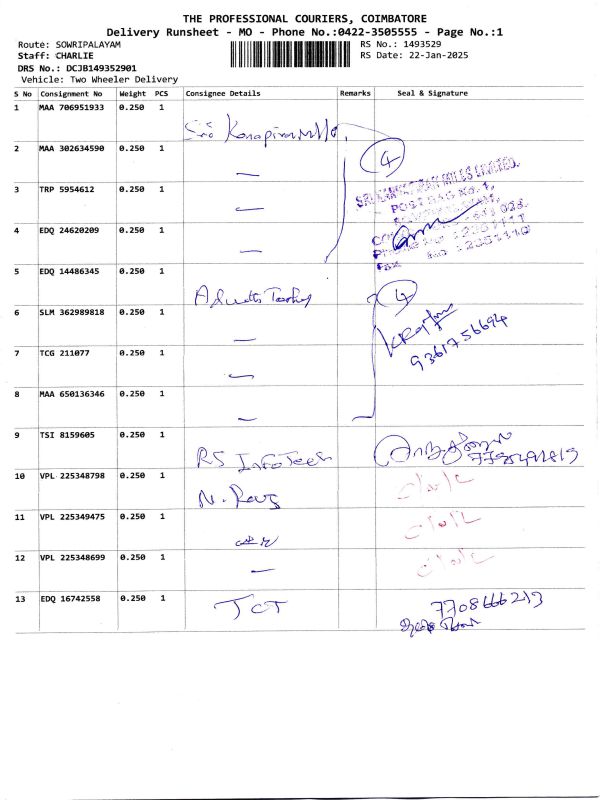 THE PROFESSIONAL COURIERS, COIMBATORE
Delivery Runsheet - MO - Phone No.:0422-3505555 - Page No.:1
Route: SOWRIPALAYAM RS No.: 1493529
Staff: CHARLIE RS Date: 22-Jan-2025
DRS No.: DCJB149352901
Vehicle: Two Wheeler Delivery
S No Consignment No Weight PCS Consignee Details Remarks Seal & Signature
1 MAA 706951933 0.250 1
2 MAA 302634590 0.250 1 — 4
3 TRP 5954612 0.250 1 —
4 EDQ 24620209 0.250 1 —
5 EDQ 14486345 0.250 1 4
6 SLM 362989818 0.250 1 — 9361756694
7 TCG 211077 0.250 1 —
8 MAA 650136346 0.250 1 —
9 TSI 8159605 0.250 1 RS InfoTech
10 VPL 225348798 0.250 1
11 VPL 225349475 0.250 1
12 VPL 225348699 0.250 1 —
13 EDQ 16742558 0.250 1 TCT 7708666213